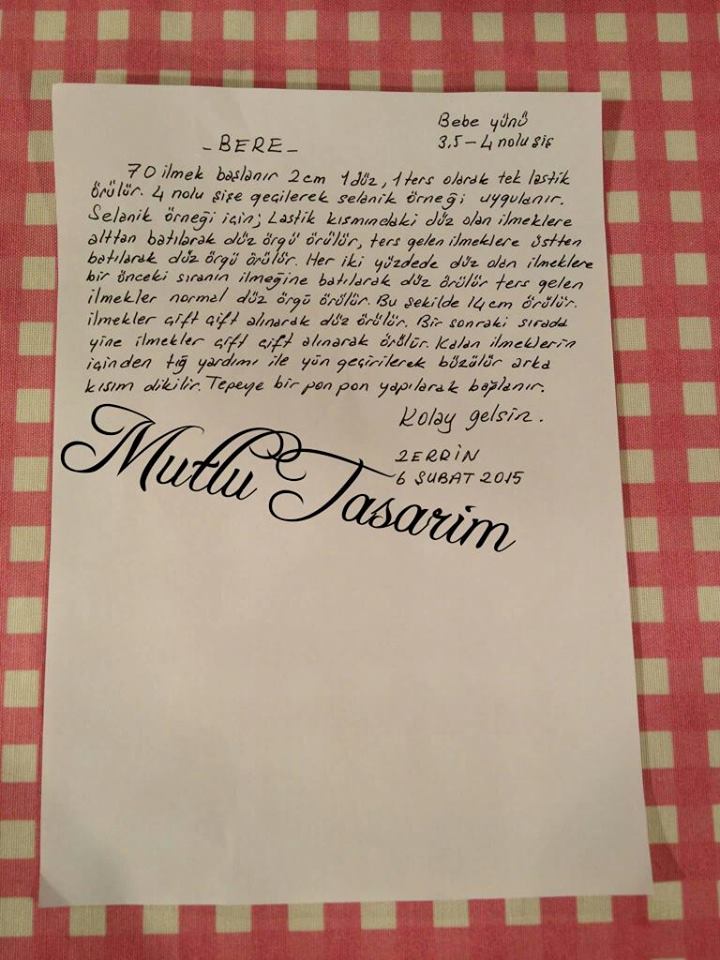 Bebe yünü
- BERE -
3,5 - 4 nolu şiş
70 ilmek başlanır 2cm 1 düz, 1 ters olarak tek lastik
örülür. 4 nolu şişe geçilerek selanik örneği uygulanır.
Selanik örneği için; Lastik kısmındaki düz olan ilmeklere
alttan batılarak düz örgü örülür, ters gelen ilmeklere üstten
batılarak düz örgü örülür. Her iki yüzdede düz olan ilmeklere
bir önceki sıranın ilmeğine batılarak düz örülür ters gelen
ilmekler normal düz örgü örülür. Bu şekilde 14 cm örülür.
ilmekler çift çift alınarak düz örülür. Bir sonraki sırada
yine ilmekler çift çift alınarak örülür. Kalan ilmeklerin
içinden tığ yardımı ile yün geçirilerek büzülür arka
kısım dikilir. Tepeye bir pon pon yapılarak bağlanır.
Kolay gelsin.
ZERRİN
6 ŞUBAT 2015
Mutlu Tasarim